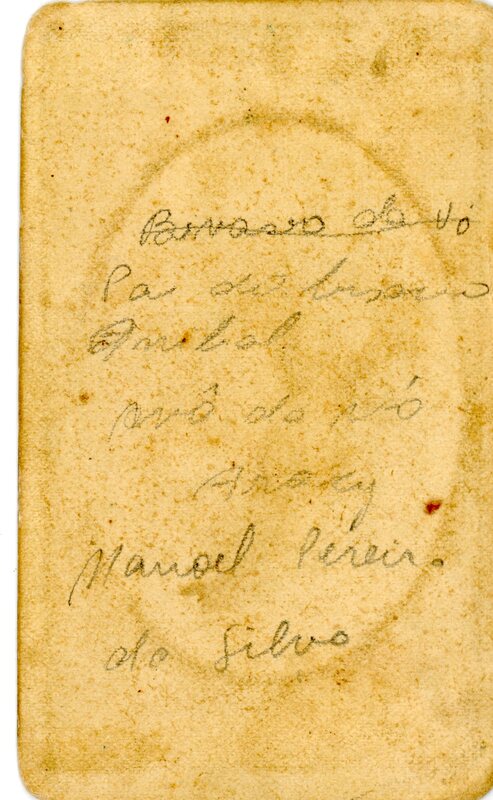 da Vó
Pai do bisavo
Anibal
avô da vó
Aracy
Manoel Pereira
da Silva